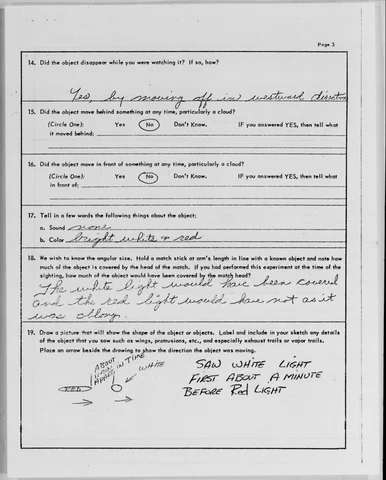 Page 3
14. Did the object disappear while you were watching it? If so, how?
Yes, by moving off in westward direction
15. Did the object move behind something at any time, particularly a cloud?
(Circle One): Yes No Don't Know. IF you answered YES, then tell what
it moved behind:
16. Did the object move in front of something at any time, particularly a cloud?
(Circle One): Yes No Don't Know. IF you answered YES, then tell what
in front of:
17. Tell in a few words the following things about the object:
a. Sound none
b. Color bright white & red
18. We wish to know the angular size. Hold a match stick at arm's length in line with a known object and note how
much of the object is covered by the head of the match. If you had performed this experiment at the time of the
sighting, how much of the object would have been covered by the match head?
The white light would have been covered
and the red light would have not as it
was oblong.
19. Draw a picture that will show the shape of the object or objects. Label and include in your sketch any details
of the object that you saw such as wings, protrusions, etc., and especially exhaust trails or vapor trails.
Place an arrow beside the drawing to show the direction the object was moving.
ABOUT
1 MIN IN TIME
APART
WHITE
RED
SAW WHITE LIGHT
FIRST ABOUT A MINUTE
BEFORE Red LIGHT